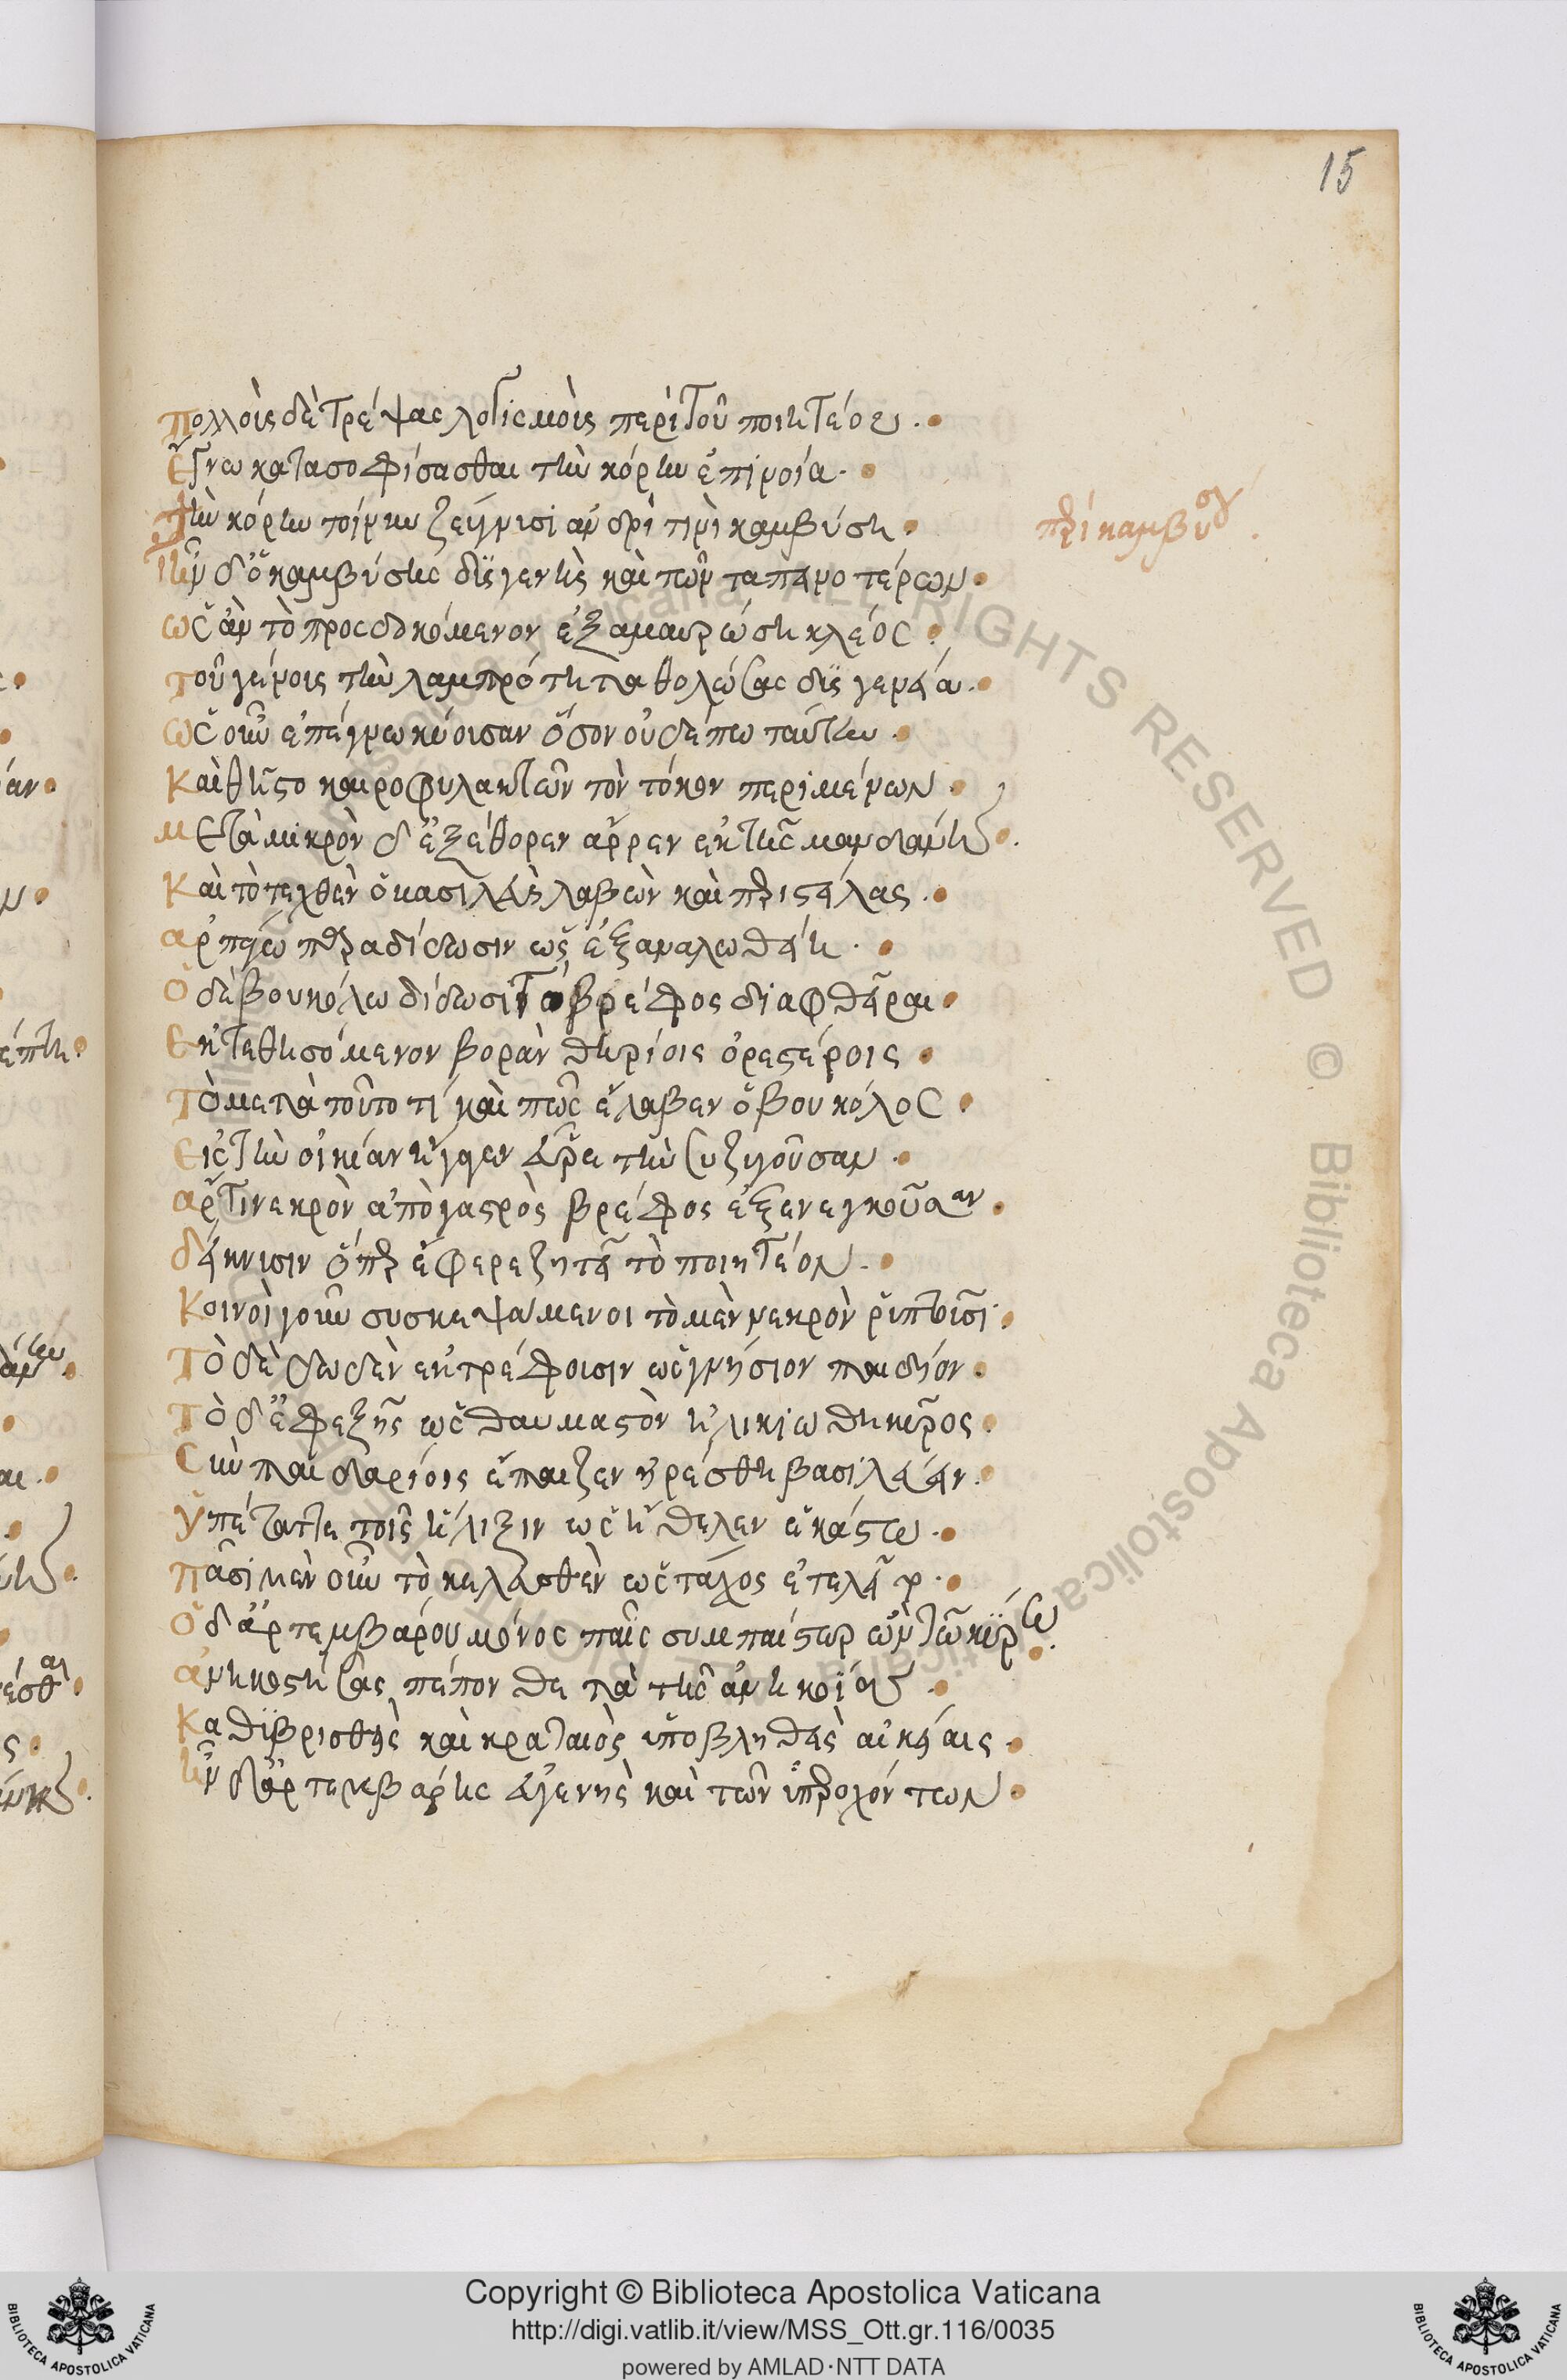 15
πολλοῖς δὲ τρέψας λογισμοῖς περὶ τοῦ ποιητέου.
ἔγνω κατασοφίσασθαι τὴν κόρην ἐπινοία.
τὴν κόρην τοίνυν ζεύγνυσι ἀνδρὶ τινὶ καμβύση.
περὶ καμβύσου.
ἦν δ' ὁ καμβύσης δυσγενὴς καὶ τῶν ταπεινοτέρων.
ὡς ἂν τὸ προσδοκόμενον ἐξαμαυρώση κλέος.
τοῦ γένους τὴν λαμπρότητα θολώσας δυσγενεία.
ὡς οὖν ἐπέγνω κύουσαν ὅσον οὐδέπω ταύτην.
καὶ θῆττο καιροφυλακτῶν τὸν τόκον περιμένων.
μετὰ μικρὸν δ' ἐξέθορεν ἄρρεν ἐκ τῆς μανδάνης.
καὶ τὸ τεχθὲν ὁ βασιλεὺς λαβὼν καὶ περιστείλας.
ἁρπάγω παραδίδωσιν ὡς ἐξαναλωθείη.
ὁ δὲ βουκόλω δίδωσι τὸ βρέφος διαφθεῖραι.
ἐκτεθησόμενον βορὰν θηρίοις ὀρεστέροις.
τὸ μετὰ τοῦτο τί καὶ πῶς ἔλαβεν ὁ βουκόλος.
εἰς τὴν οἰκίαν ἤγαγεν εὗρε τὴν συζυγοῦσαν.
ἄρτι νεκρὸν ἀπὸ γαστρὸς βρέφος ἐξενεγκοῦσαν.
δείκνυσιν ὅπερ ἔφερε ζητεῖ τὸ ποιητέον.
κοινοὶ γοῦν συσκεψάμενοι τὸ μὲν νεκρὸν ῥίπτουσι.
τὸ δὲ δωθὲν ἐκτρέφουσιν ὡς γνήσιον παιδίον.
τὸ δ' ἐφεξῆς ὡς θαυμαστὸν ἡλικιώθη κῦρος.
σὺν παιδαρίοις ἔπαιζεν ἡρέσθη βασιλεύειν.
ὑπέταττε τοῖς ἥλιξιν ὡς ἤθελεν ἑκάστω.
πᾶσι μὲν οὖν τὸ κελευσθὲν ὡς τάχος ἐτελεῖτο.
ὁ δ' ἀρτεμβάρου μόνος παῖς συμπαίστωρ ὢν τῶ κύρω.
ἀνηκουστήσας πέπονθε τὰ τῆς ἀνηκοίας.
καθυβρισθεὶς καὶ κραταιῶς ὑποβληθεὶς αἰκίαις.
ἦν δ' ἀρτεμβάρης εὐγενὴς καὶ τῶν ὑπεροχόντων